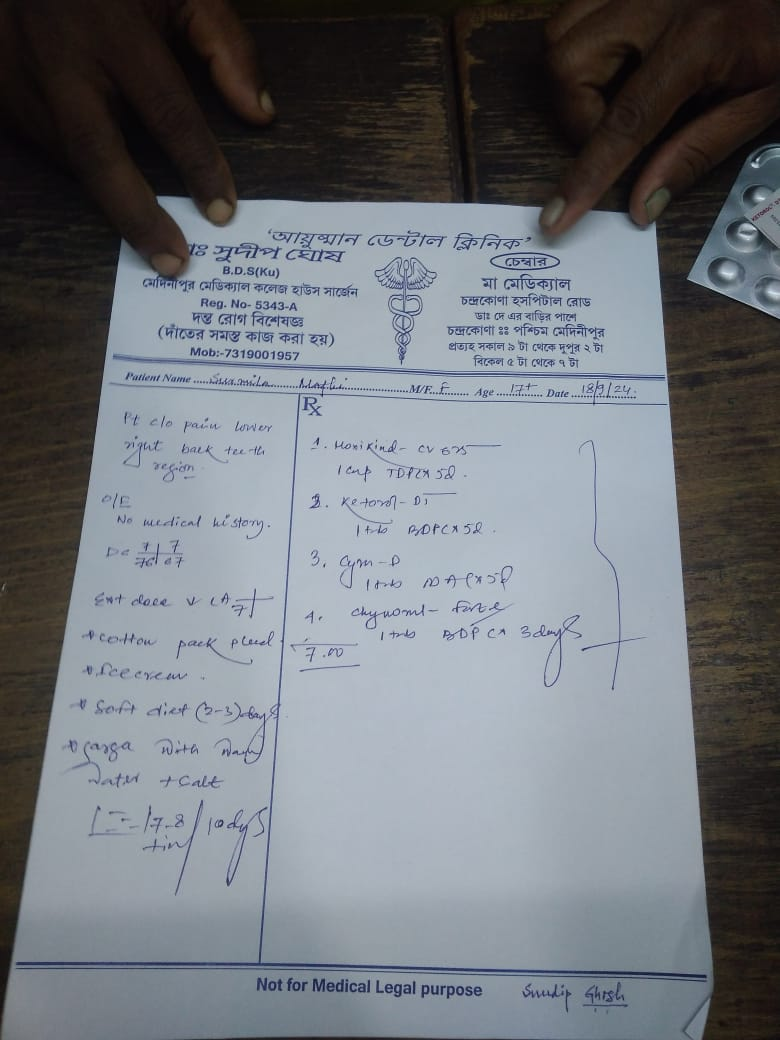 'আয়ুষ্মান ডেন্টাল ক্লিনিক'
ডাঃ সুদীপ ঘোষ
B.D.S(Ku)
মেদিনীপুর মেডিক্যাল কলেজ হাউস সার্জেন
Reg. No- 5343-A
দন্ত রোগ বিশেষজ্ঞ
(দাঁতের সমস্ত কাজ করা হয়)
Mob:-7319001957
চেম্বার
মা মেডিক্যাল
চন্দ্রকোণা হসপিটাল রোড
ডাঃ দে এর বাড়ির পাশে
চন্দ্রকোণা ঃঃ পশ্চিম মেদিনীপুর
প্রত্যহ সকাল ৯ টা থেকে দুপুর ২ টা
বিকেল ৫ টা থেকে ৭ টা
Patient Name M/F. F Age 17+ Date 18/9/24
Pt c/o pain lower
right back teeth
region.
O/E
No medical history.
7 7
LA 7
* cotton pack
* Icecream.
* Soft diet (2-3) days
* with
Water + Salt
7-8 / 10 days
Rx
1. CV 625
1 cap TDPC x 5d.
2. Ketorol- DT
1 tab BDPC x 5d.
3.
1 tab x 5d
4. forte
1 tab BDPC x 3 days
7.00
Not for Medical Legal purpose
Sudip Ghosh